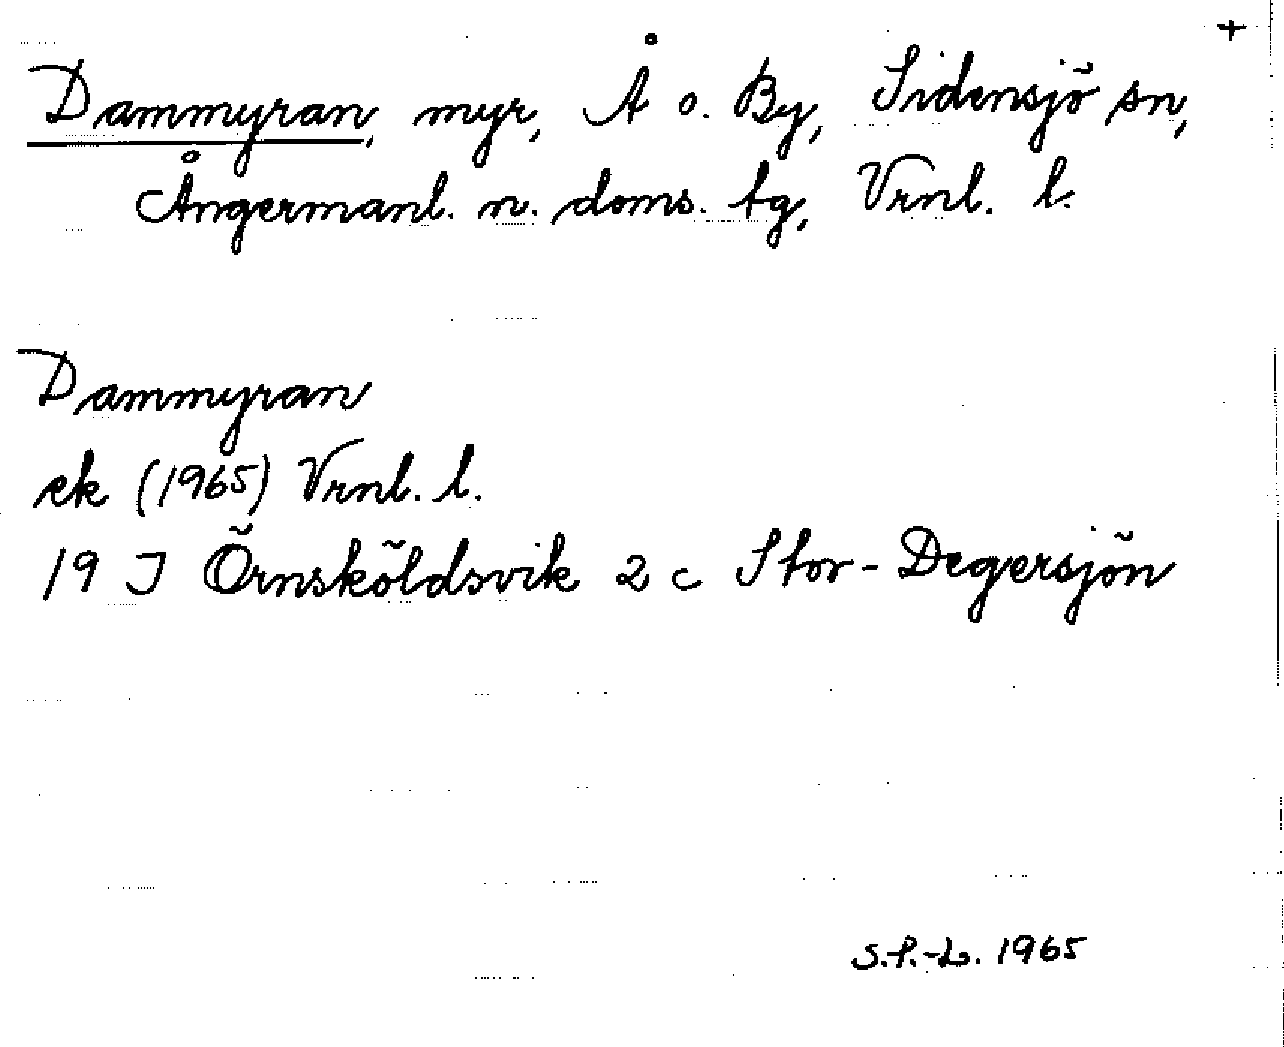 +
Dammyran, myr, Å o. By, Sidensjö sn,
Ångermanl. n. doms. tg, Vrnl. l.
Dammyran
ek (1965) Vrnl. l.
19 J Örnsköldsvik 2 c Stor-Degersjön
S.P.-L. 1965